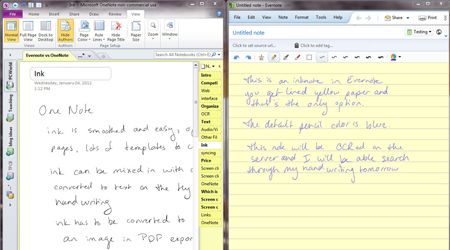 Ink - Microsoft OneNote non-commercial use
Untitled note - Evernote
Normal View
Dock to Desktop
Full Page View
Hide Authors
Page Color
Rule Lines
Hide Page Title
Paper Size
Evernote vs OneNote
Search All Notebooks (Ctrl+E)
PCWorld
Teaching
blog ideas
Ink
Wednesday, January 04, 2012
1:12 PM
One Note
ink is smoothed and easy,
pages, lots of templates to c
ink can be mixed in with
converted to text on the
handwriting
ink has to be converted to
an image in PDF expor
Intro
Competi
Web
interface
Organize
OCR
Text
Audio/Vi
Other Fil
Ink
syncing
Price
Screen cli
Screen cli
OneNote
Which is
Screen c
Links
OneNote
File Edit View Note Format Tools Help
Share
Print
Untitled note
Testing
Click to set source url...
Click to add tag...
This is an inknote in Evernote
you get lined yellow paper and
that's the only option.
The default pencil color is blue.
This note will be OCR'ed on the
server and I will be able search
through my handwriting tomorrow